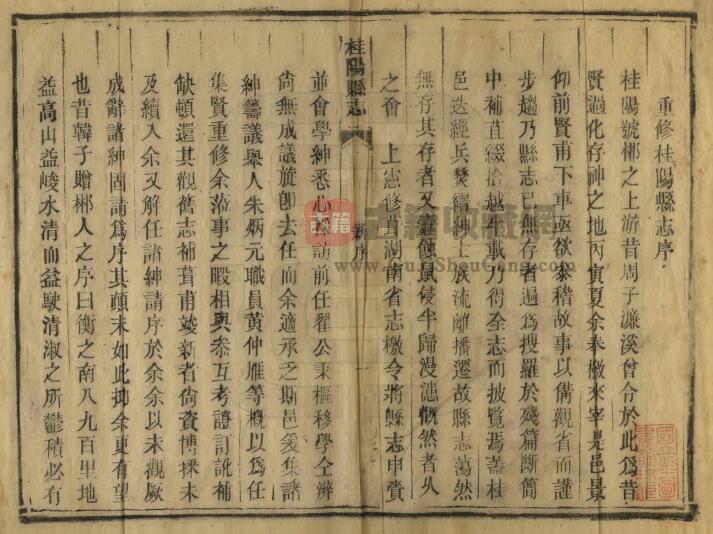 重修桂陽縣志序
桂陽號郴之上游昔周子濂溪曾令於此為昔
賢過化存神之地丙寅夏余奉檄來宰是邑景
仰前賢甫下車亟欲叅稽故事以備觀省而謹
步趨乃縣志已無存者遍為搜羅於殘篇斷簡
中補苴綴拾越半載力得全志而披覽焉蓋桂
邑迭經兵燹縉紳士族流離播遷故縣志蕩然
無存其存者又蠹蝕鼠侵半歸漫漶慨然者久
之會 上憲修葺湖南省志檄令將縣志申賫
桂陽縣志
新序
並會學紳悉心訪前任翟公秉樞移學仝辦
尚無成議旋卽去任而余適承乏斯邑爰集諸
紳籌議舉人朱炳元職員黃仲雁等概以為任
集賢重修余蒞事之暇相與叅互考證訂訛補
缺頓還其觀舊志補葺甫竣新者尙資博採未
及續入余又解任諸紳請序於余余以未觀厥
成辭諸紳固請爲序其顛末如此抑余更有望
也昔韓子贈郴人之序曰衡之南八九百里地
益高山益峻水清而益駛清淑之所鬱積必有
古籍收藏網
www.GuJiShouCang.com